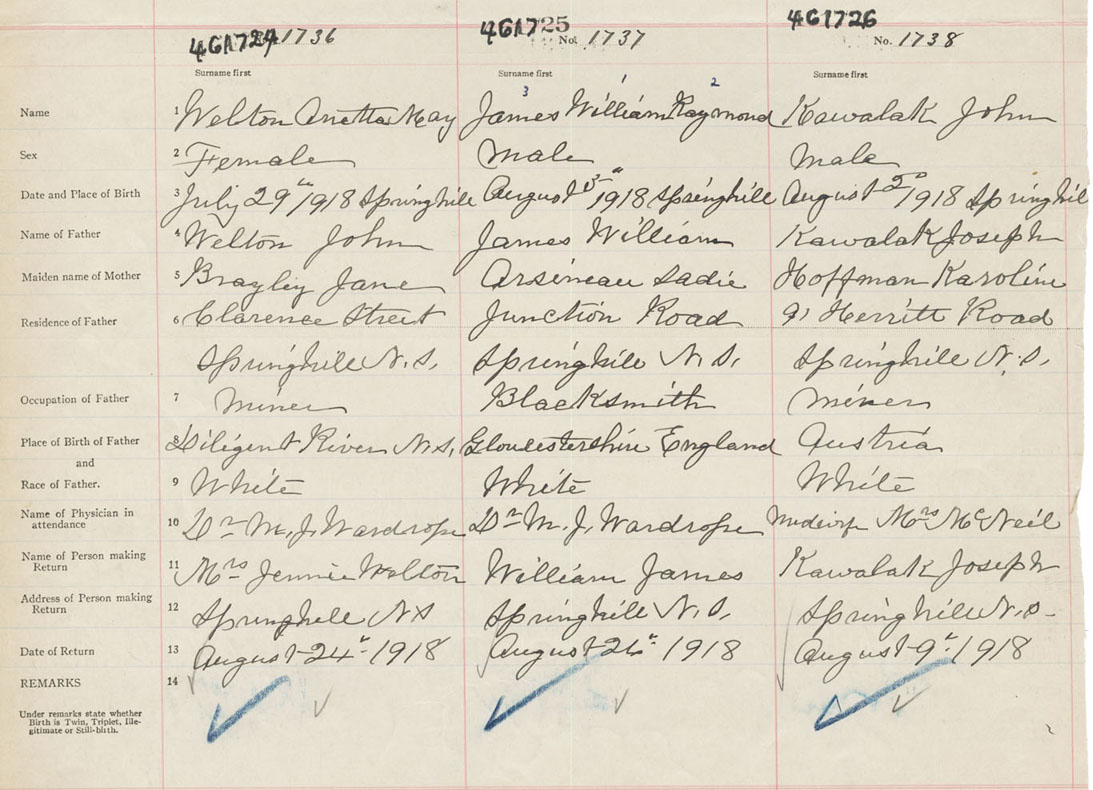 461724 1736 461725 No. 1737 461726 No. 1738
Surname first Surname first Surname first
3 1 2
Name 1 Welton Anetta May James William Raymond Kawalak John
Sex 2 Female Male Male
Date and Place of Birth 3 July 29th 1918 Springhill August 1918 Springhill August 2nd 1918 Springhill
Name of Father 4 Welton John James William Kawalak Joseph
Maiden name of Mother 5 Brayley Jane Arsineau Sadie Hoffman Karoline
Residence of Father 6 Clarence Street Junction Road 91 Herritt Road
Springhill N.S. Springhill N.S. Springhill N.S.
Occupation of Father 7 Miner Blacksmith Miner
Place of Birth of Father 8 Diligent River N.S. Gloucestershire England Austria
and
Race of Father. 9 White White White
Name of Physician in attendance 10 Dr M. J. Wardrope Dr M. J. Wardrope Midwife Mrs McNeil
Name of Person making Return 11 Mrs Jennie Welton William James Kawalak Joseph
Address of Person making Return 12 Springhill N.S Springhill N.S. Springhill N.S.
Date of Return 13 August 24th 1918 August 26th 1918 August 9th 1918
REMARKS 14
Under remarks state whether
Birth is Twin, Triplet, Ille-
gitimate or Still-birth.